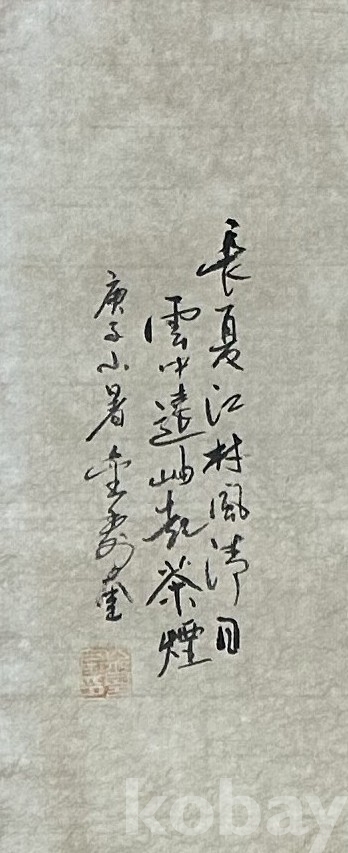 長夏江村風清日
雲中遠岫起茶煙
庚子小暑金壽
kobay